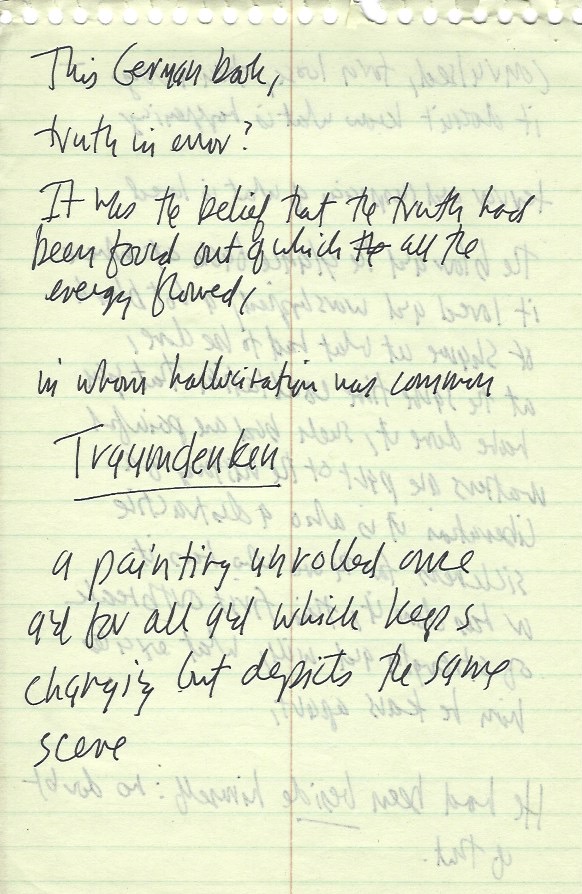 This German book,
truth in error?
It was the belief that the truth had
been found out of which all the
energy flowed,
in whom hallucination was common
Traumdenken
a painting unrolled once
and for all and which keeps
changing but depicts the same
scene